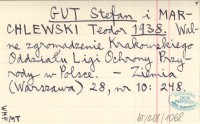 GUT Stefan i MAR-
CHLEWSKI Teodor 1938. Wal-
ne zgromadzenie Krakowskiego
Oddziału Ligi Ochrony Przy-
rody w Polsce. - Ziemia
(Warszawa) 28, nr 10: 248.
WMP
MT